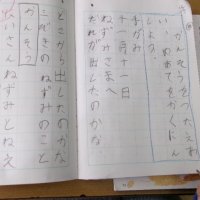 かんそうをつたえあ
い、めあてをかくにん
しよう。
手がみ
十一月十一日
ねずみさまへ
だれが出したのかな
どこから出したのかな
かんそう
こぞきのねずみのこと
いさんねずみとねえ